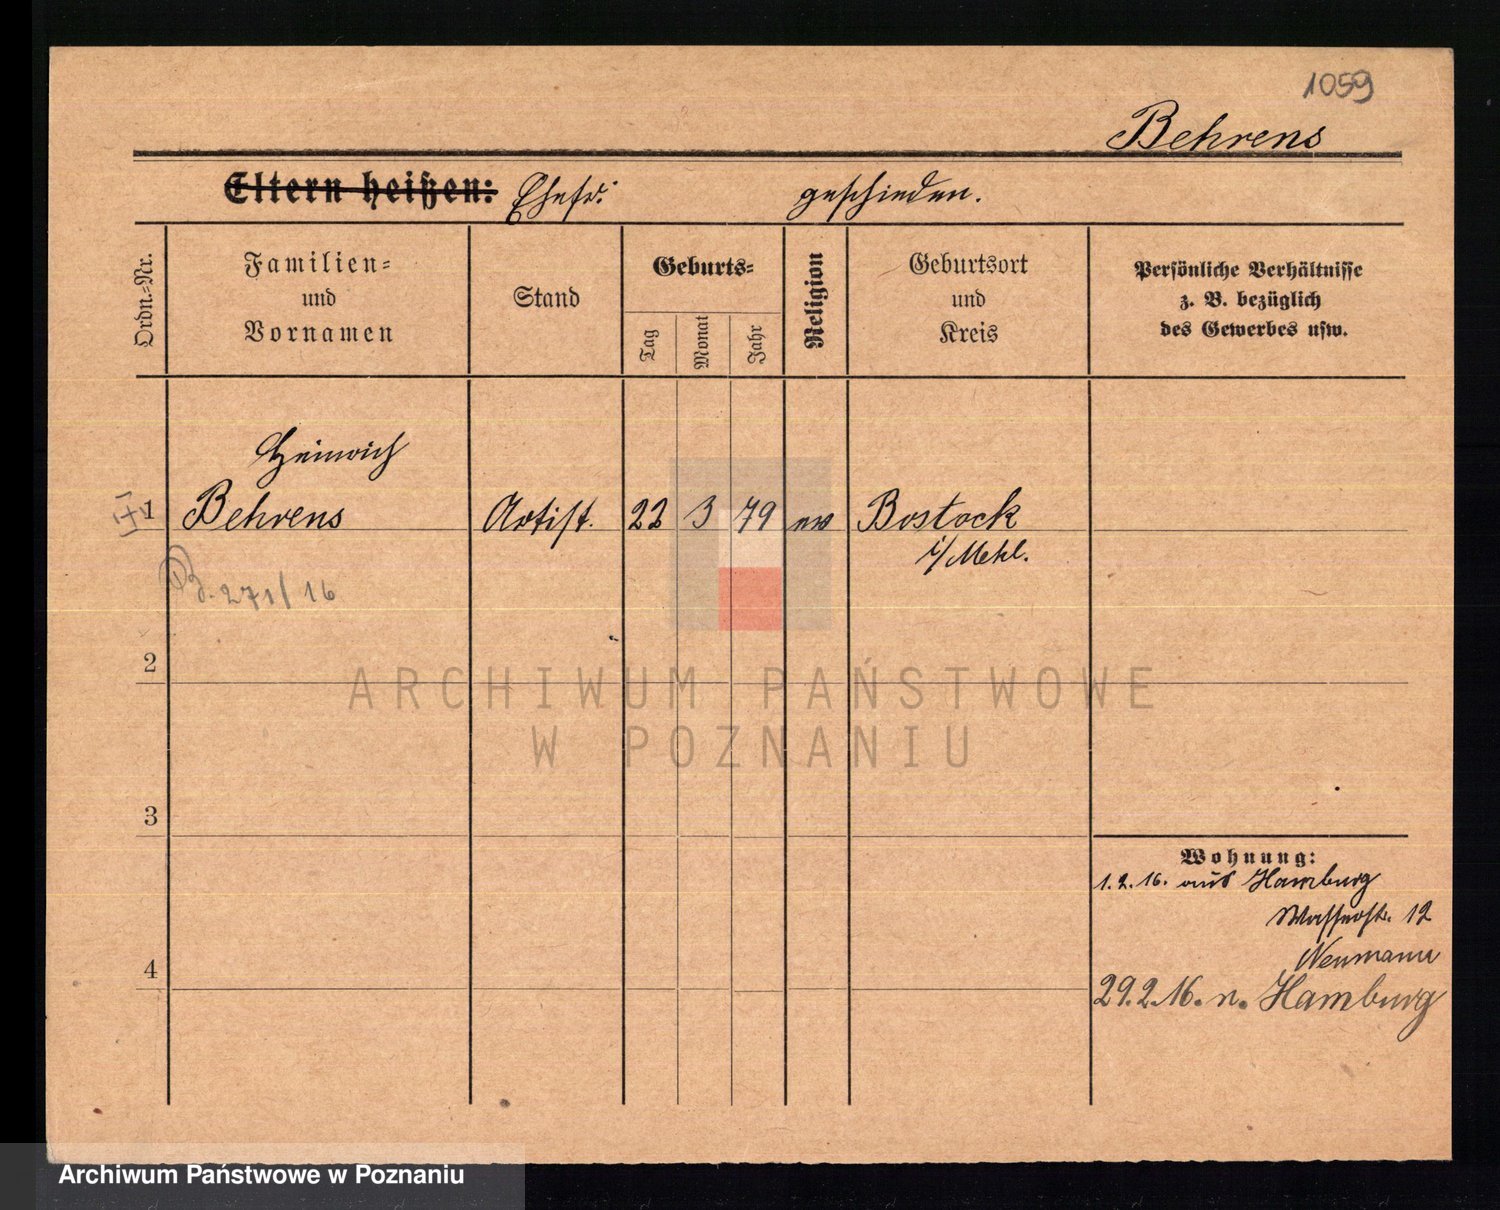 1059
Behrens
Eltern heißen: Ehefr: geschieden.
Ordn.=Nr.
Familien=
und
Vornamen
Stand
Geburts=
Tag
Monat
Jahr
Religion
Geburtsort
und
Kreis
Persönliche Verhältnisse
z. B. bezüglich
des Gewerbes usw.
Heinrich
1 Behrens Artist. 22 3 79 ev Rostock
i/Mekl.
271/16
2
ARCHIWUM PAŃSTWOWE
W POZNANIU
3
Wohnung:
1.2.16. aus Hamburg
Wasserstr. 12
Neumann
4
29.2.16. n. Hamburg
Archiwum Państwowe w Poznaniu